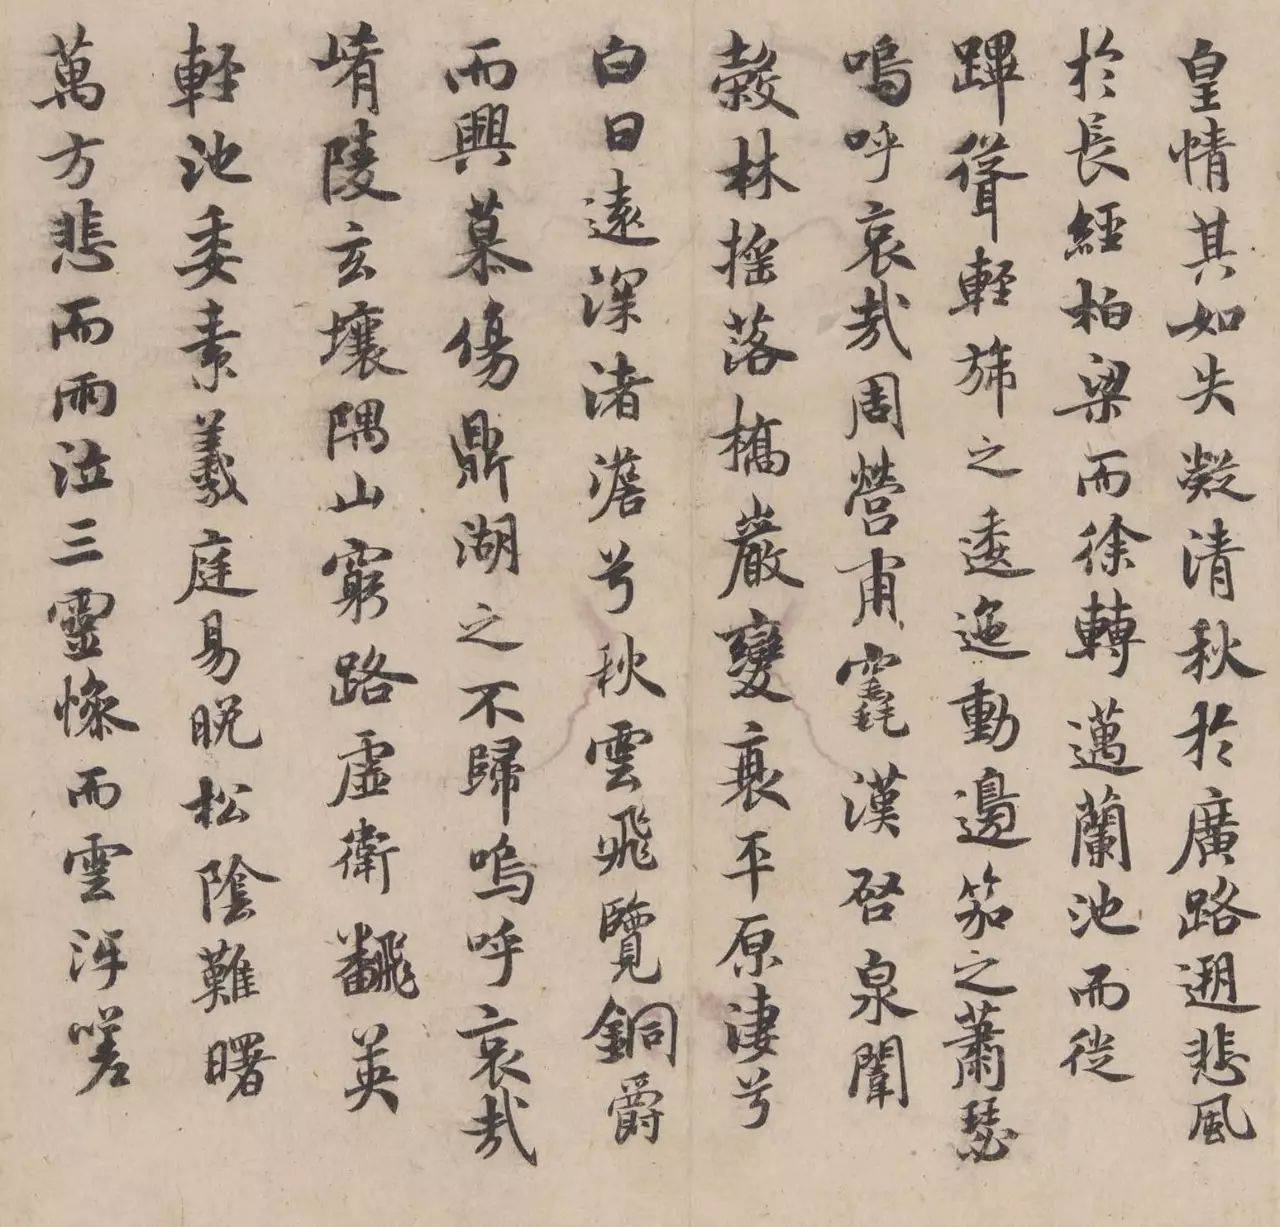 皇情其如失凝清秋於廣路遡悲風
於長經柏梁而徐轉邁蘭池而徙
蹕聳輕旆之逶迤動邊笳之蕭瑟
嗚呼哀哉周營甫竁漢啓泉闈
榖林搖落橋巖變衰平原淒兮
白日遠深渚澹兮秋雲飛覽銅爵
而興慕傷鼎湖之不歸嗚呼哀哉
崤陵玄壤隅山窮路虛衛飜英
輕池委素羲庭易晚松陰難曙
萬方悲而雨泣三靈慘而雲沍嗟